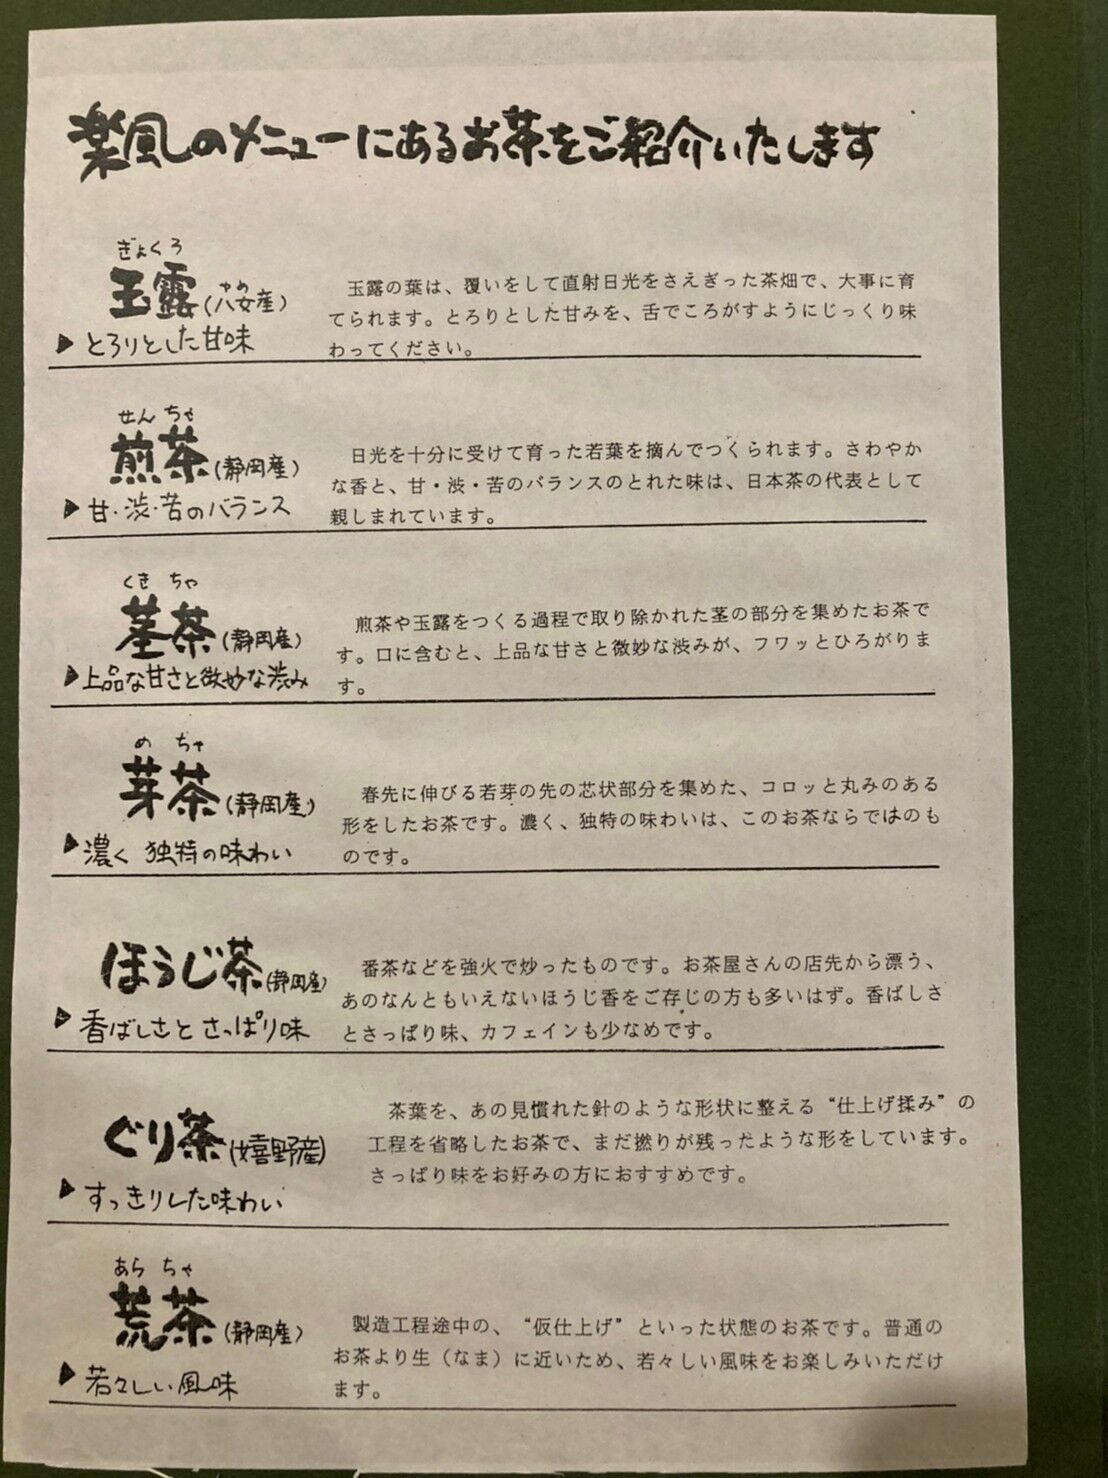 楽風のメニューにあるお茶をご紹介いたします
ぎょくろ
玉露(八女産)
やめ
▶とろりとした甘味
玉露の葉は、覆いをして直射日光をさえぎった茶畑で、大事に育
てられます。とろりとした甘みを、舌でころがすようにじっくり味
わってください。
せんちゃ
煎茶(静岡産)
▶甘・渋・苦のバランス
日光を十分に受けて育った若葉を摘んでつくられます。さわやか
な香と、甘・渋・苦のバランスのとれた味は、日本茶の代表として
親しまれています。
くきちゃ
茎茶(静岡産)
▶上品な甘さと微妙な渋み
煎茶や玉露をつくる過程で取り除かれた茎の部分を集めたお茶で
す。口に含むと、上品な甘さと微妙な渋みが、フワッとひろがりま
す。
めちゃ
芽茶(静岡産)
▶濃く 独特の味わい
春先に伸びる若芽の先の芯状部分を集めた、コロッと丸みのある
形をしたお茶です。濃く、独特の味わいは、このお茶ならではのも
のです。
ほうじ茶(静岡産)
▶香ばしさと さっぱり味
番茶などを強火で炒ったものです。お茶屋さんの店先から漂う、
あのなんともいえないほうじ香をご存じの方も多いはず。香ばしさ
とさっぱり味、カフェインも少なめです。
ぐり茶(嬉野産)
▶すっきりした味わい
茶葉を、あの見慣れた針のような形状に整える“仕上げ揉み”の
工程を省略したお茶で、まだ撚りが残ったような形をしています。
さっぱり味をお好みの方におすすめです。
あらちゃ
荒茶(静岡産)
▶若々しい風味
製造工程途中の、“仮仕上げ”といった状態のお茶です。普通の
お茶より生(なま)に近いため、若々しい風味をお楽しみいただけ
ます。